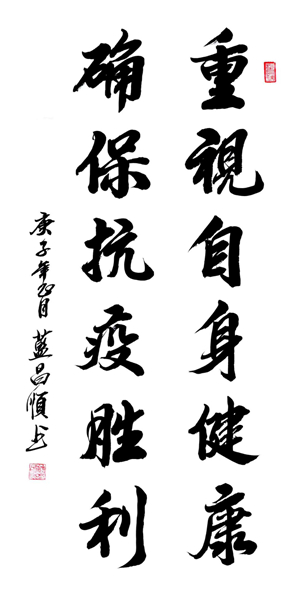 重視自身健康
确保抗疫胜利
庚子年正月藍昌順书